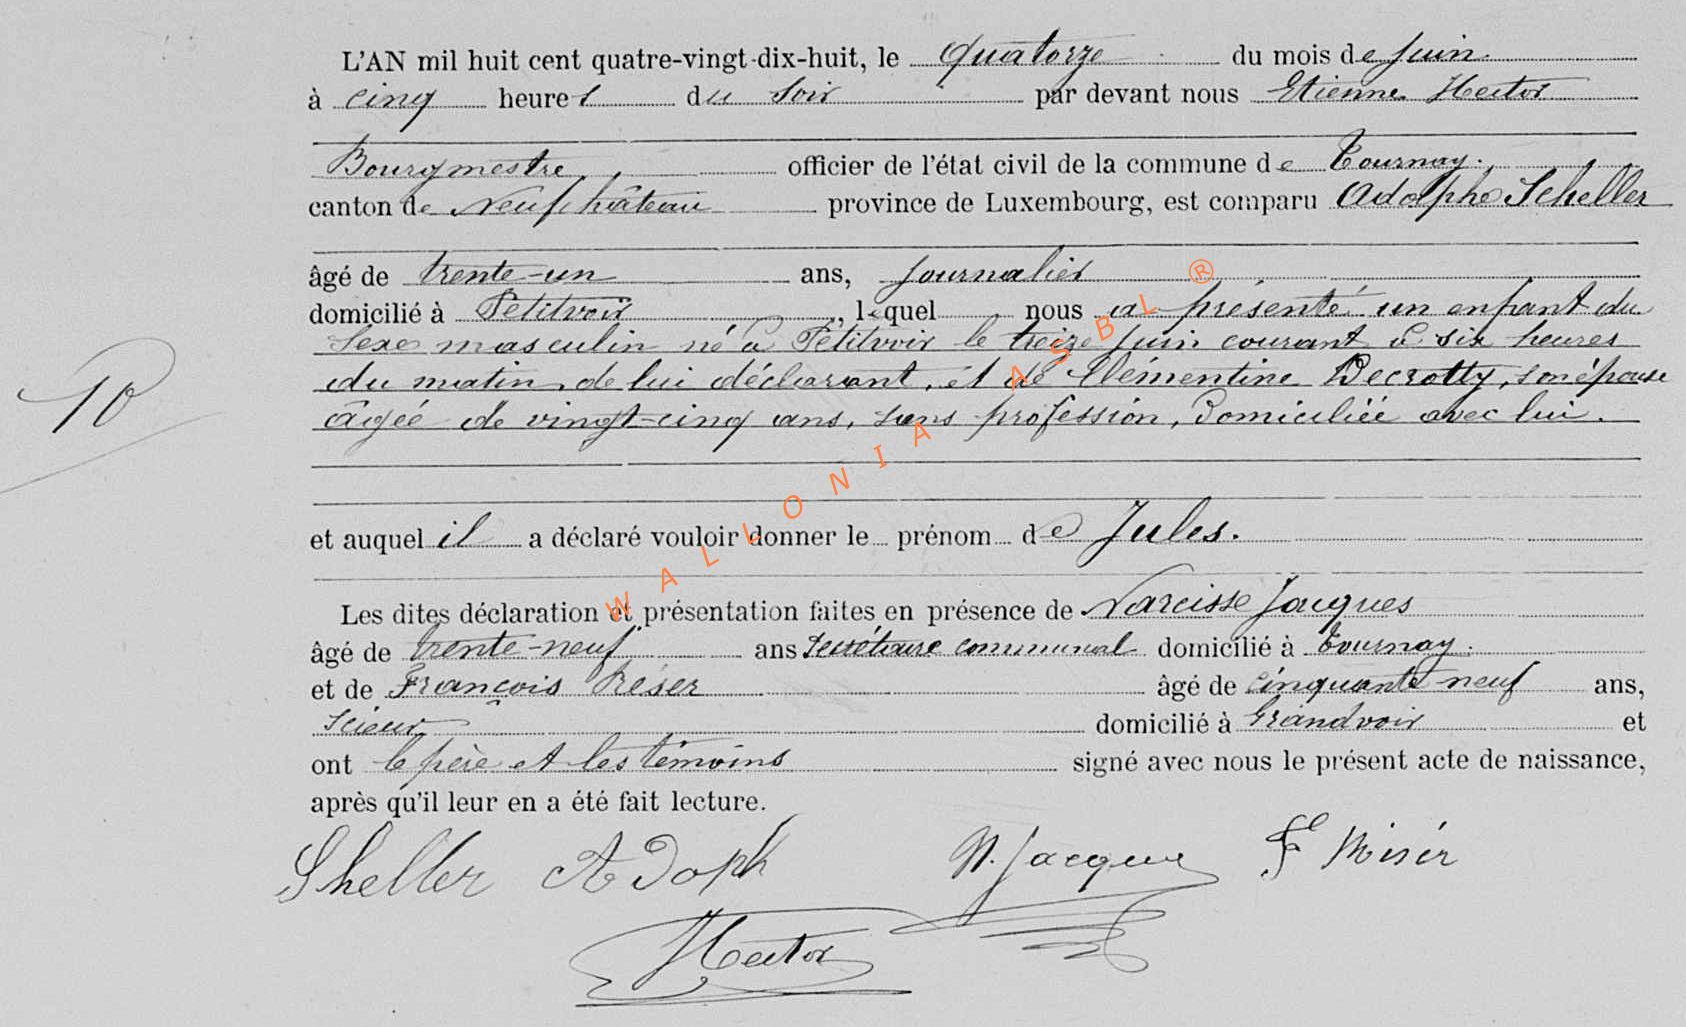 L'AN mil huit cent quatre-vingt-dix-huit, le quatorze du mois de juin
à cinq heures du soir par devant nous Etienne Hector
Bourgmestre officier de l'état civil de la commune de Tournay.
canton de Neufchâteau province de Luxembourg, est comparu Adolphe Scheller
âgé de trente-un ans, journalier
domicilié à Petitvoir, lequel nous a présenté un enfant du
sexe masculin né à Petitvoir le treize juin courant à six heures
du matin, de lui déclarant, et de Clémentine Decrotty, son épouse
âgée de vingt-cinq ans, sans profession, domiciliée avec lui.
10
et auquel il a déclaré vouloir donner le prénom de Jules.
Les dites déclaration et présentation faites en présence de Narcisse Jacques
âgé de trente-neuf ans secrétaire communal domicilié à Tournay.
et de François âgé de cinquante neuf ans,
scieur domicilié à Grandvoir et
ont le père et les témoins signé avec nous le présent acte de naissance,
après qu'il leur en a été fait lecture.
Sheller Adoph N. Jacques F
Hector
WALLONIA ASBL ®